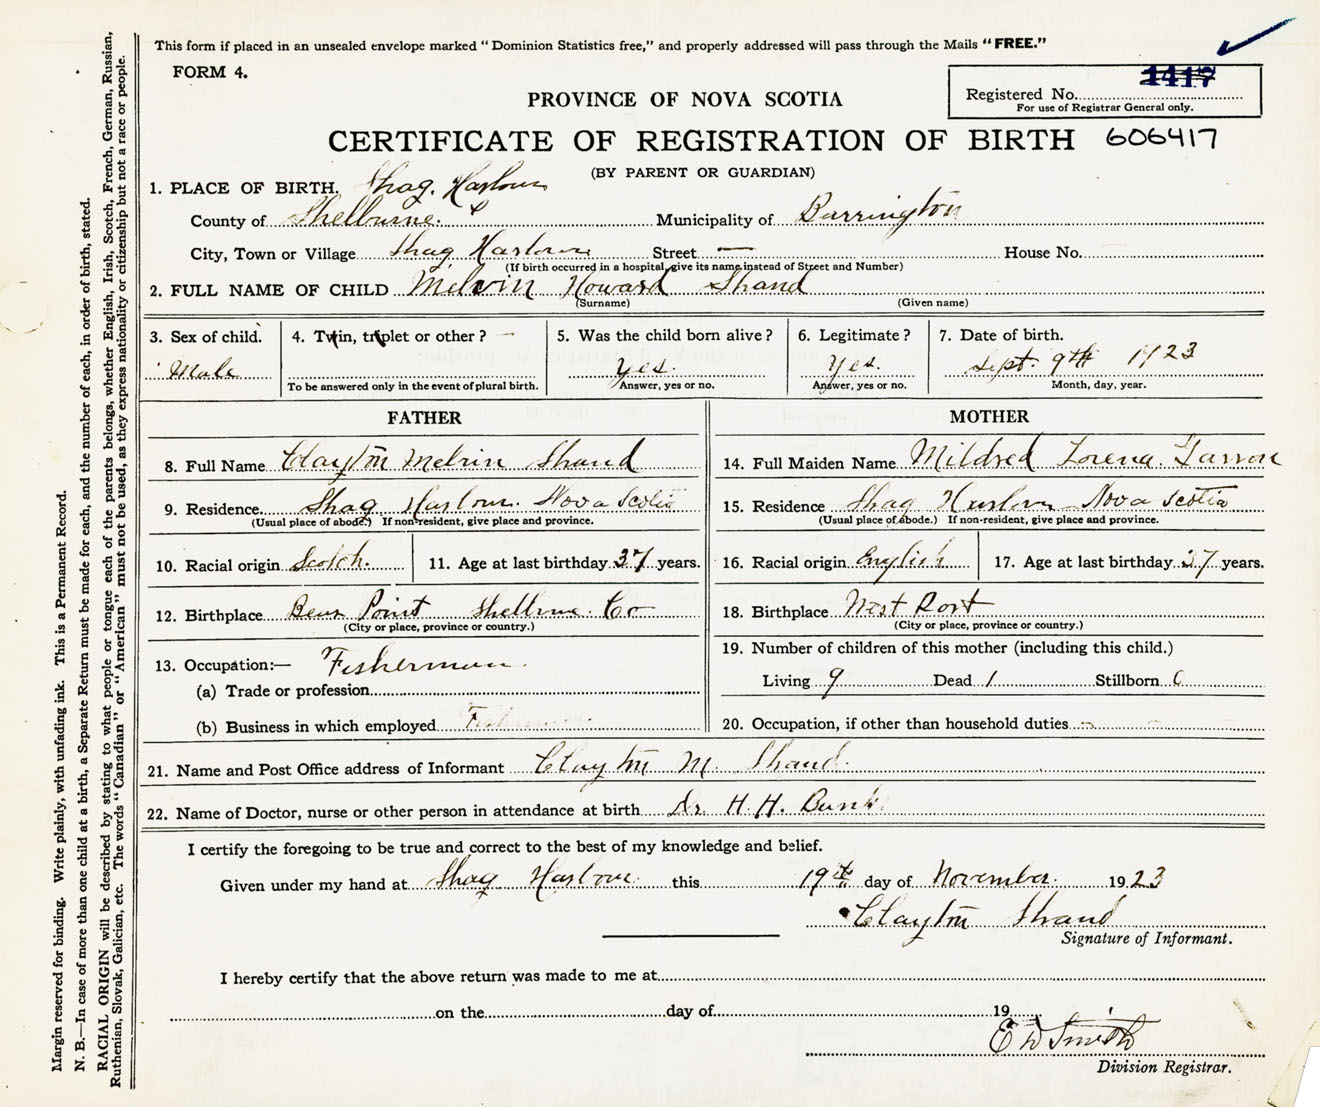 This form if placed in an unsealed envelope marked "Dominion Statistics free," and properly addressed will pass through the Mails "FREE."
FORM 4.
1417
Registered No.
For use of Registrar General only.
PROVINCE OF NOVA SCOTIA
CERTIFICATE OF REGISTRATION OF BIRTH 606417
(BY PARENT OR GUARDIAN)
1. PLACE OF BIRTH. Shag. Harbour
County of Shelburne. Municipality of Barrington
City, Town or Village Shag Harbour Street — House No.
(If birth occurred in a hospital, give its name instead of Street and Number)
2. FULL NAME OF CHILD Melvin Howard Shand
(Surname) (Given name)
3. Sex of child. 4. Twin, triplet or other? — 5. Was the child born alive? 6. Legitimate? 7. Date of birth.
Male Yes. Yes. Sept. 9th 1923
To be answered only in the event of plural birth. Answer, yes or no. Answer, yes or no. Month, day, year.
FATHER MOTHER
8. Full Name Clayton Melvin Shand 14. Full Maiden Name Mildred Lorena
9. Residence. Shag Harbour. Nova Scotia 15. Residence Shag Harbour Nova Scotia
(Usual place of abode.) If non-resident, give place and province. (Usual place of abode.) If non-resident, give place and province.
10. Racial origin Scotch. 11. Age at last birthday 37 years. 16. Racial origin English 17. Age at last birthday 37 years.
12. Birthplace Bear Point Shelburne Co 18. Birthplace West Port
(City or place, province or country.) (City or place, province or country.)
13. Occupation:— Fisherman 19. Number of children of this mother (including this child.)
(a) Trade or profession Living 9 Dead 1 Stillborn
(b) Business in which employed 20. Occupation, if other than household duties
21. Name and Post Office address of Informant Clayton M. Shand.
22. Name of Doctor, nurse or other person in attendance at birth Dr. H. H.
I certify the foregoing to be true and correct to the best of my knowledge and belief.
Given under my hand at Shag Harbour this 19th day of November. 1923
Clayton Shand
Signature of Informant.
I hereby certify that the above return was made to me at
on the day of 19
E D Smith
Division Registrar.
Margin reserved for binding. Write plainly, with unfading ink. This is a Permanent Record.
N. B.—In case of more than one child at a birth, a Separate Return must be made for each, and the number of each, in order of birth, stated.
RACIAL ORIGIN will be described by stating to what people or tongue each of the parents belongs, whether English, Irish, Scotch, French, German, Russian,
Ruthenian, Slovak, Galician, etc. The words "Canadian" or "American" must not be used, as they express nationality or citizenship but not a race or people.